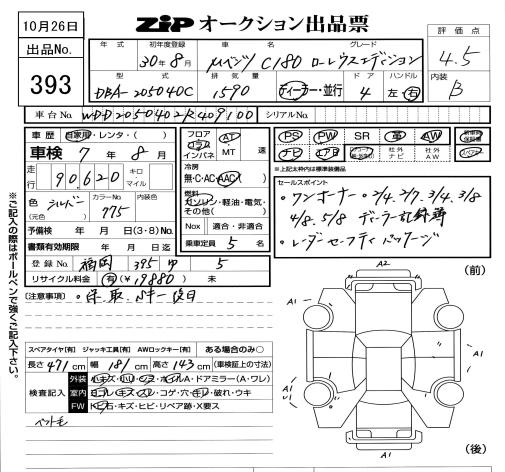 10月26日
ZIP オークション出品票
出品No.
393
評価点
4.5
内装
B
年式 初年度登録 車名 グレード
30年8月 Mベンツ C180 ローレウスエディション
型式 排気量 ドア ハンドル
DBA-205040C 1590 ディーラー・並行 4 左 右
車台No. WDD2050402R409100 シリアルNo.
車歴 自家用・レンタ・( )
車検 7年 8月
走行 90,620 キロ マイル
色 (元色) シルバー カラーNo. 775 内装色
予備検 年 月 日(3・8)No.
書類有効期限 年 月 日迄
登録No. 福岡 395 5
リサイクル料金 有(¥19880) 未
フロア コラム インパネ AT MT 速
冷房
無・C・AC・AAC
燃料
ガソリン・軽油・電気・その他( )
Nox 適合・非適合
乗車定員 5 名
PS PW SR 革 AW
ナビ エアB 社外ナビ 社外AW
※上記太枠内は標準装備品
セールスポイント
・ワンオーナー ・2/4. 2/7. 3/4. 3/8
4/8. 5/8 ディーラー記録簿
・レーダーセーフティパッケージ
[注意事項] ・保.取.Sキー後日
スペアタイヤ[有] ジャッキ工具[有] AWロックキー[有] ある場合のみ○
長さ 471 cm 幅 181 cm 高さ 143 cm (車検証上の寸法)
検査記入
外装 小キズ・小ヘコ・ホイルA・ドアミラー(A・ワレ)
室内 ヨゴレ・キズ・スレ・コゲ・穴・キレ・破れ・ウキ
FW トビ石・キズ・ヒビ・リペア跡・X要ス
ペット毛
(前)
A2
A1
A1
A1
A1
A1
(後)
※ご記入の際はボールペンで強くご記入下さい。